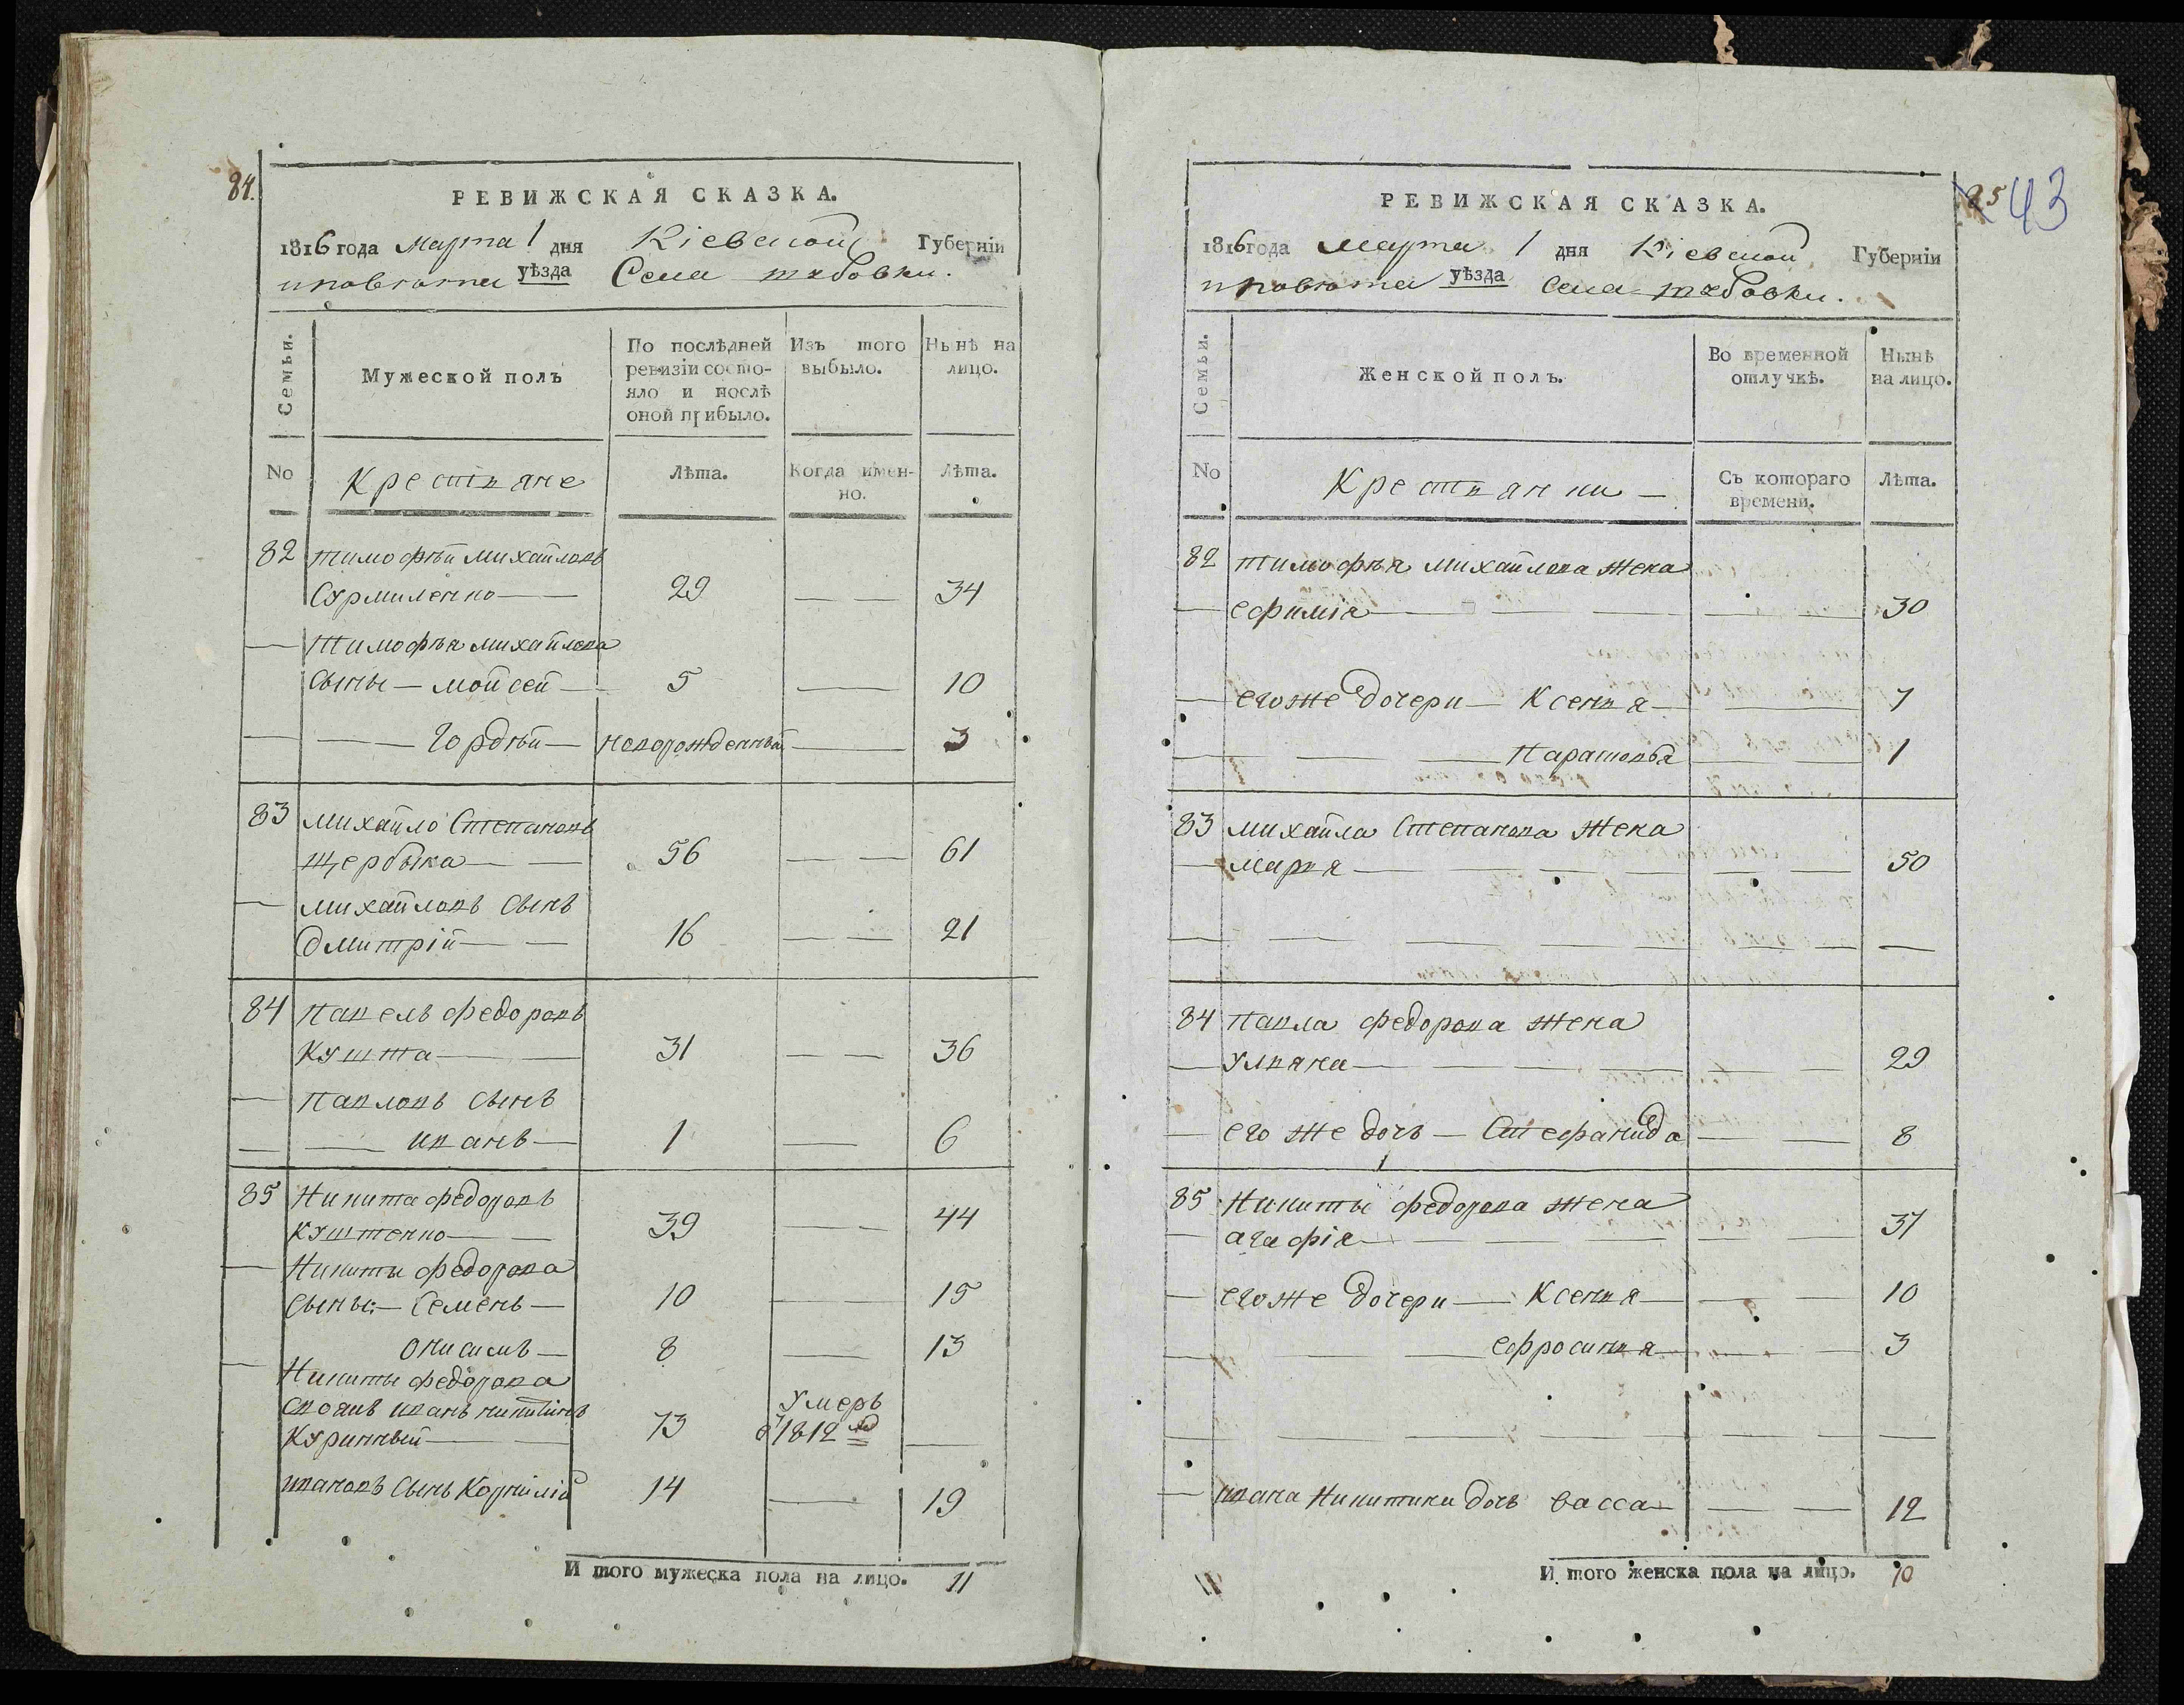 84.
РЕВИЖСКАЯ СКАЗКА.
1816 года марта 1 дня Кіевской Губерніи
и повѣта уѣзда Села
Семьи.
Мужеской полъ
По послѣдней ревизіи состо-
яло и послѣ
оной прибыло.
Изъ того
выбыло.
Нынѣ на
лицо.
No
Крестьяне
Лѣта.
Когда имен-
но.
Лѣта.
82 тимофѣй михайловъ
Сурмиленко 29 34
Тимофѣя михайлова
сыны мойсей 5 10
гордѣй новорожденный 3
83 михайло Степановъ
щербына 56 61
михайловъ сынъ
Дмитрій 16 21
84 павелъ федоровъ
кушта 31 36
павловъ сынъ
иванъ 1 6
85 Никита федоровъ
куштенко 39 44
Никиты федорова
сыны: Семенъ 10 15
онисимъ 8 13
Никиты федорова
своякъ иванъ никитинъ
куринный 73 умеръ 1812
ивановъ сынъ Корнилій 14 19
И того мужеска пола на лицо. 11
85 43
РЕВИЖСКАЯ СКАЗКА.
1816 года марта 1 дня Кіевской Губерніи
и повѣта уѣзда Села
Семьи.
Женской полъ.
Во временной
отлучкѣ.
Нынѣ
на лицо.
No
Крестьянки
Съ котораго
времени.
Лѣта.
82 тимофѣя михайлова жена
ефимія 30
егоже дочери Ксенья 7
парасковья 1
83 михайла Степанова жена
марья 50
84 павла федорова жена
ульяна 29
его же дочь Стефанида 8
85 Никиты федорова жена
агафія 37
егоже дочери Ксенья 10
ефросинья 3
ивана Никитина дочь васса 12
И того женска пола на лицо. 10